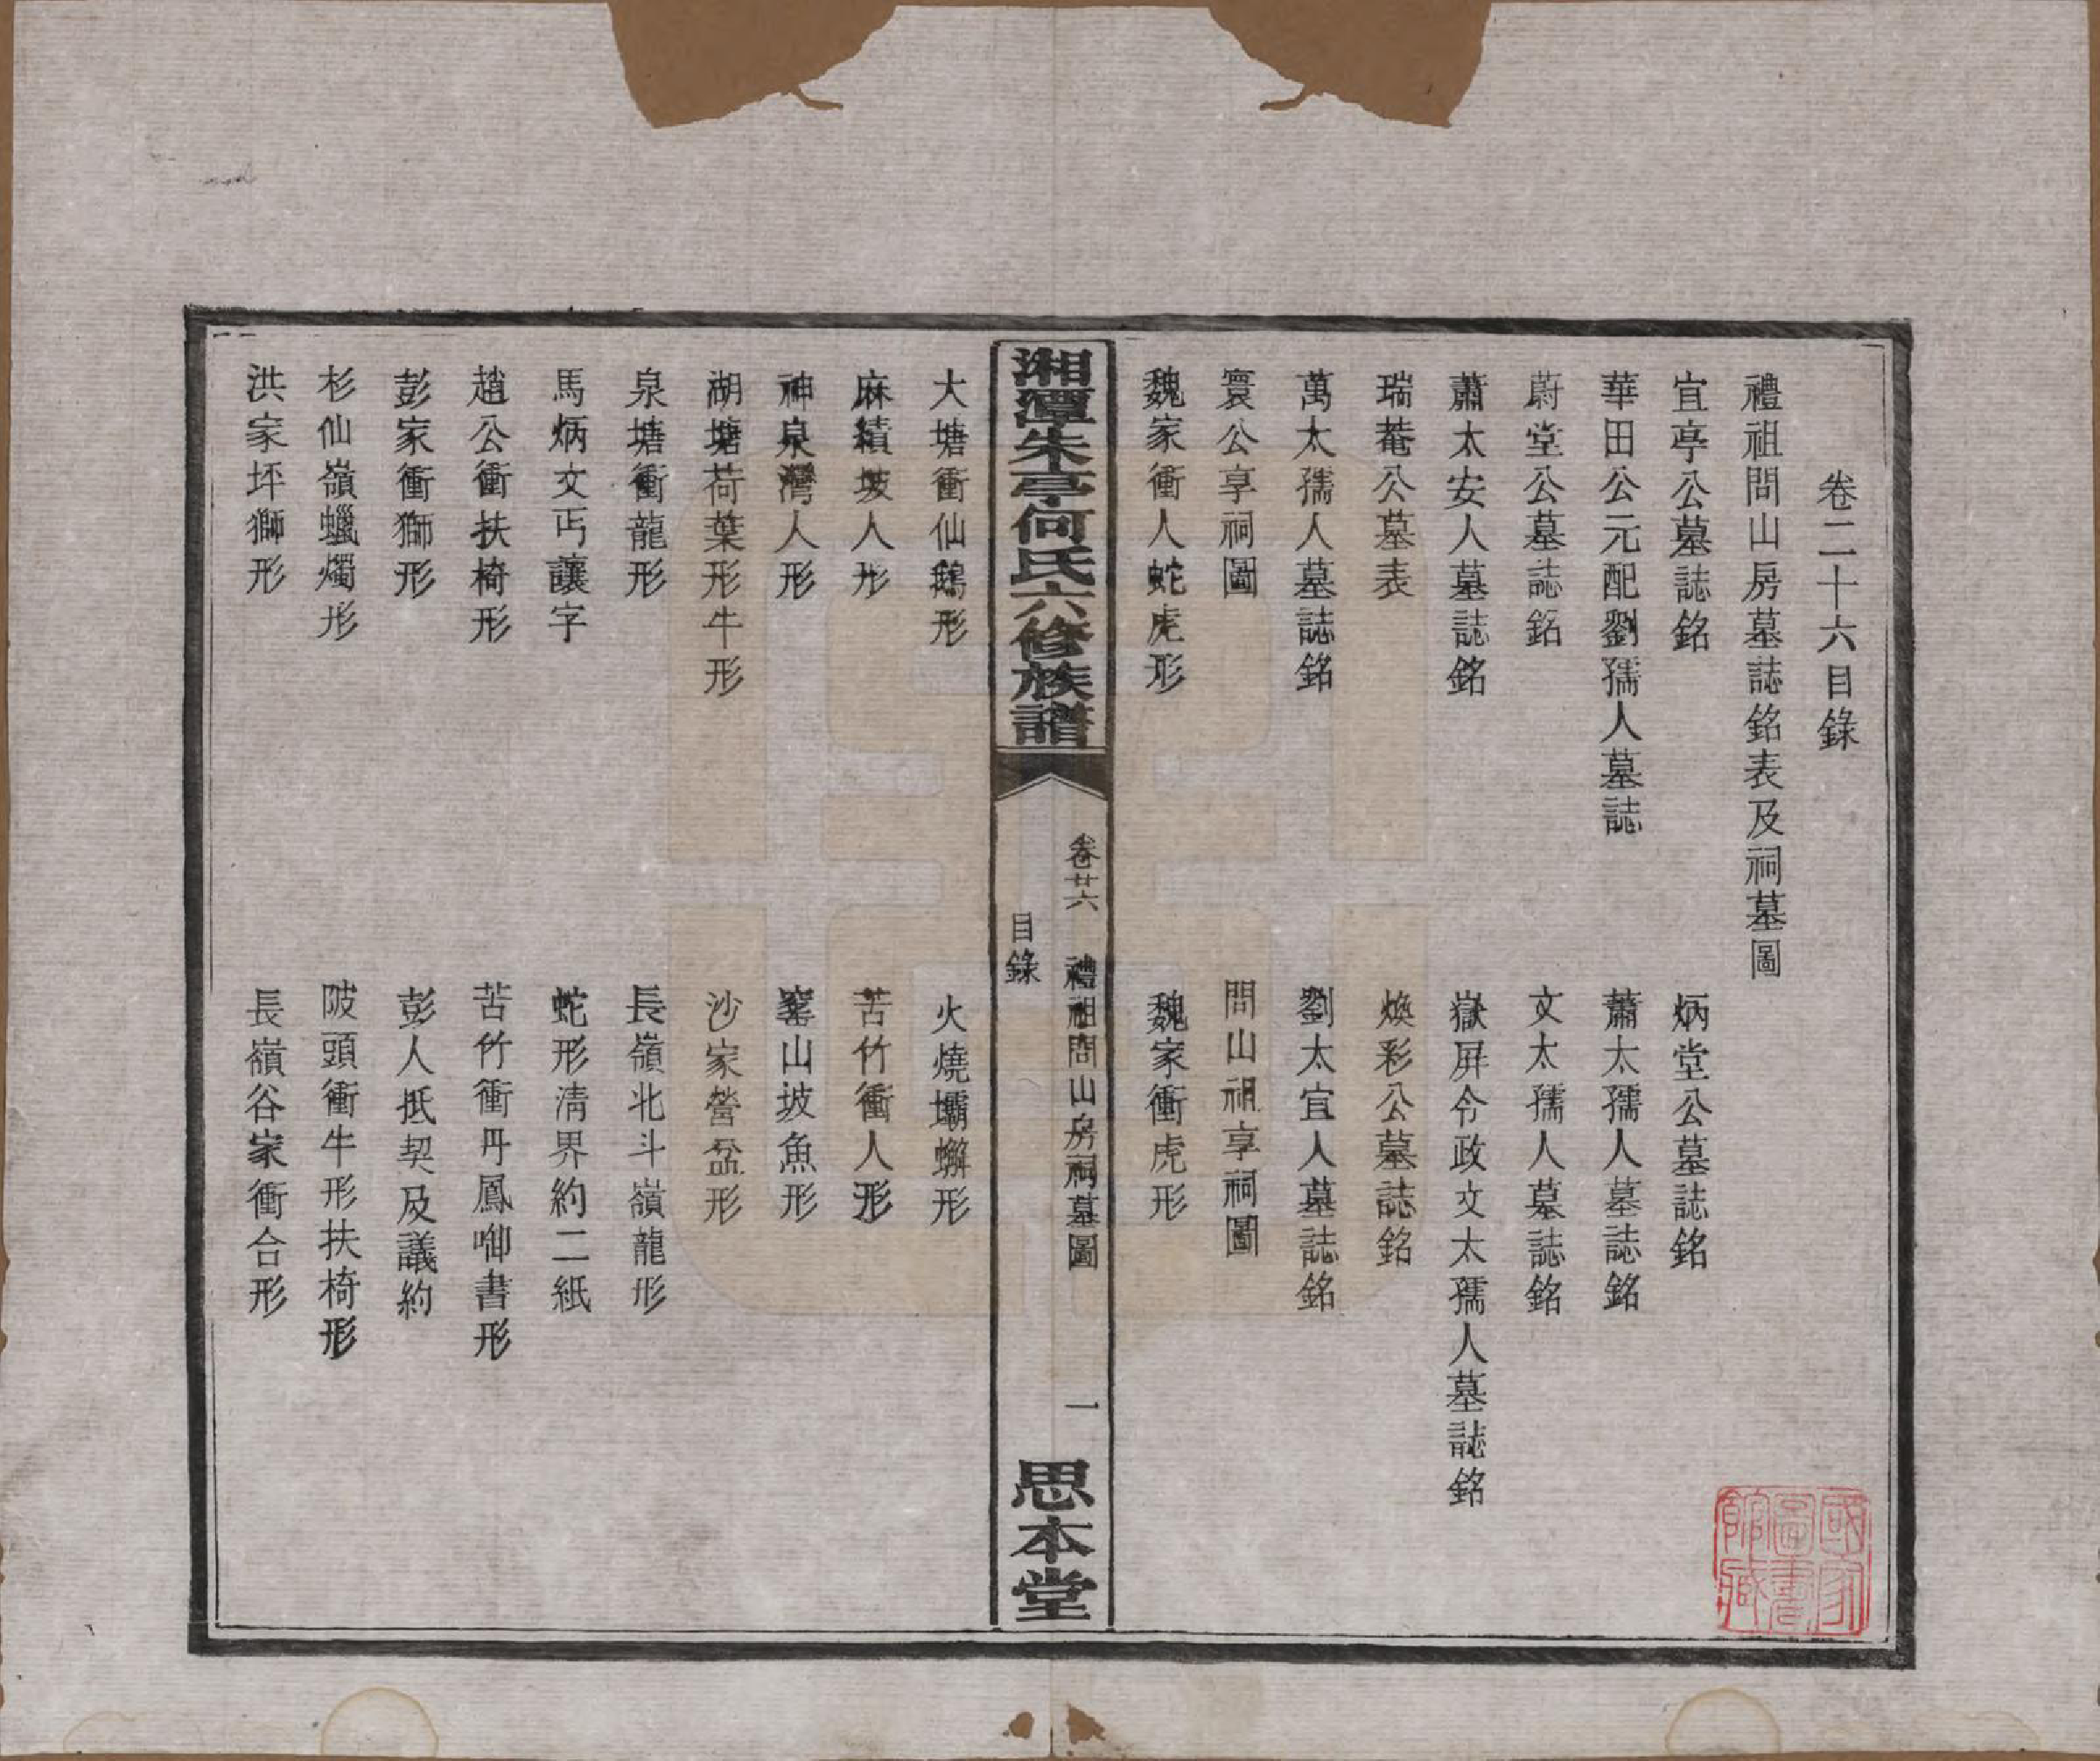 卷二十六目錄
禮祖問山房墓誌銘表及祠墓圖
宜亭公墓誌銘
炳堂公墓誌銘
華田公元配劉孺人墓誌
蕭太孺人墓誌銘
蔚堂公墓誌銘
文太孺人墓誌銘
蕭太安人墓誌銘
嶽屏令政文太孺人墓誌銘
瑞菴公墓表
煥彩公墓誌銘
萬太孺人墓誌銘
劉太宜人墓誌銘
寰公享祠圖
問山祖享祠圖
魏家衝人蛇虎形
魏家衝虎形
湘潭朱亭何氏六修族譜
卷廿六 禮祖問山房祠墓圖
目錄
一
思本堂
大塘衝仙鵝形
火燒壩蠏形
麻績坡人形
苦竹衝人形
神泉灣人形
窰山坡魚形
湖塘荷葉形牛形
沙家營盆形
泉塘衝龍形
長嶺北斗嶺龍形
馬炳文丐讓字
蛇形淸界約二紙
趙公衝扶椅形
苦竹衝丹鳳啣書形
彭家衝獅形
彭人抵契及議約
杉仙嶺蠟燭形
陂頭衝牛形扶椅形
洪家坪獅形
長嶺谷家衝合形
國家圖書館藏